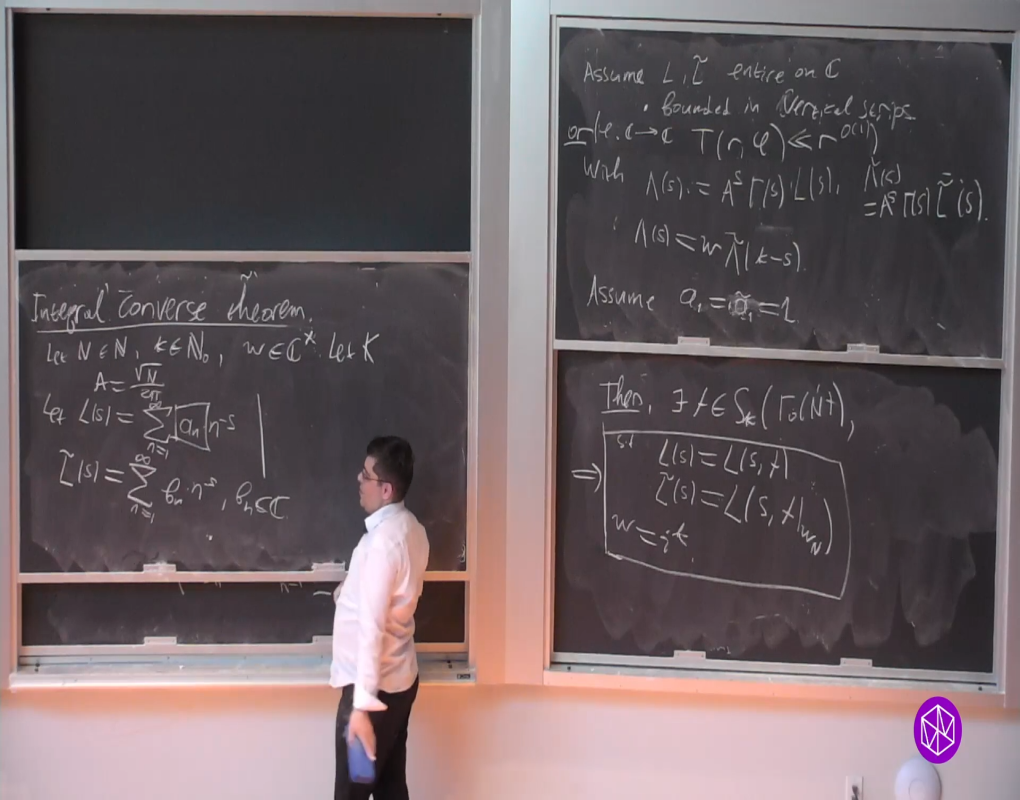 Integral converse theorem.
Let N ∈ ℕ, k ∈ ℕ₀, w ∈ ℂ^×. Let K
A = √N / 2π
Let L(s) = ∑_{n=1}^∞ a_n n^{-s}
L̃(s) = ∑_{n=1}^∞ b_n n^{-s}, b_n ∈ ℂ
Assume L, L̃ entire on ℂ
• bounded in vertical strips
or φ: ℂ → ℂ T(r, φ) ≪ r^{O(1)}
With Λ(s) := A^s Γ(s) L(s), Λ̃(s)
= A^s Γ(s) L̃(s).
Λ(s) = w Λ̃(k-s).
Assume a₁ = ã₁ = 1
Then, ∃ f ∈ S_k(Γ₀(N)),
s.t L(s) = L(s, f)
⇒ L̃(s) = L(s, f|_{W_N})
w = i^k.